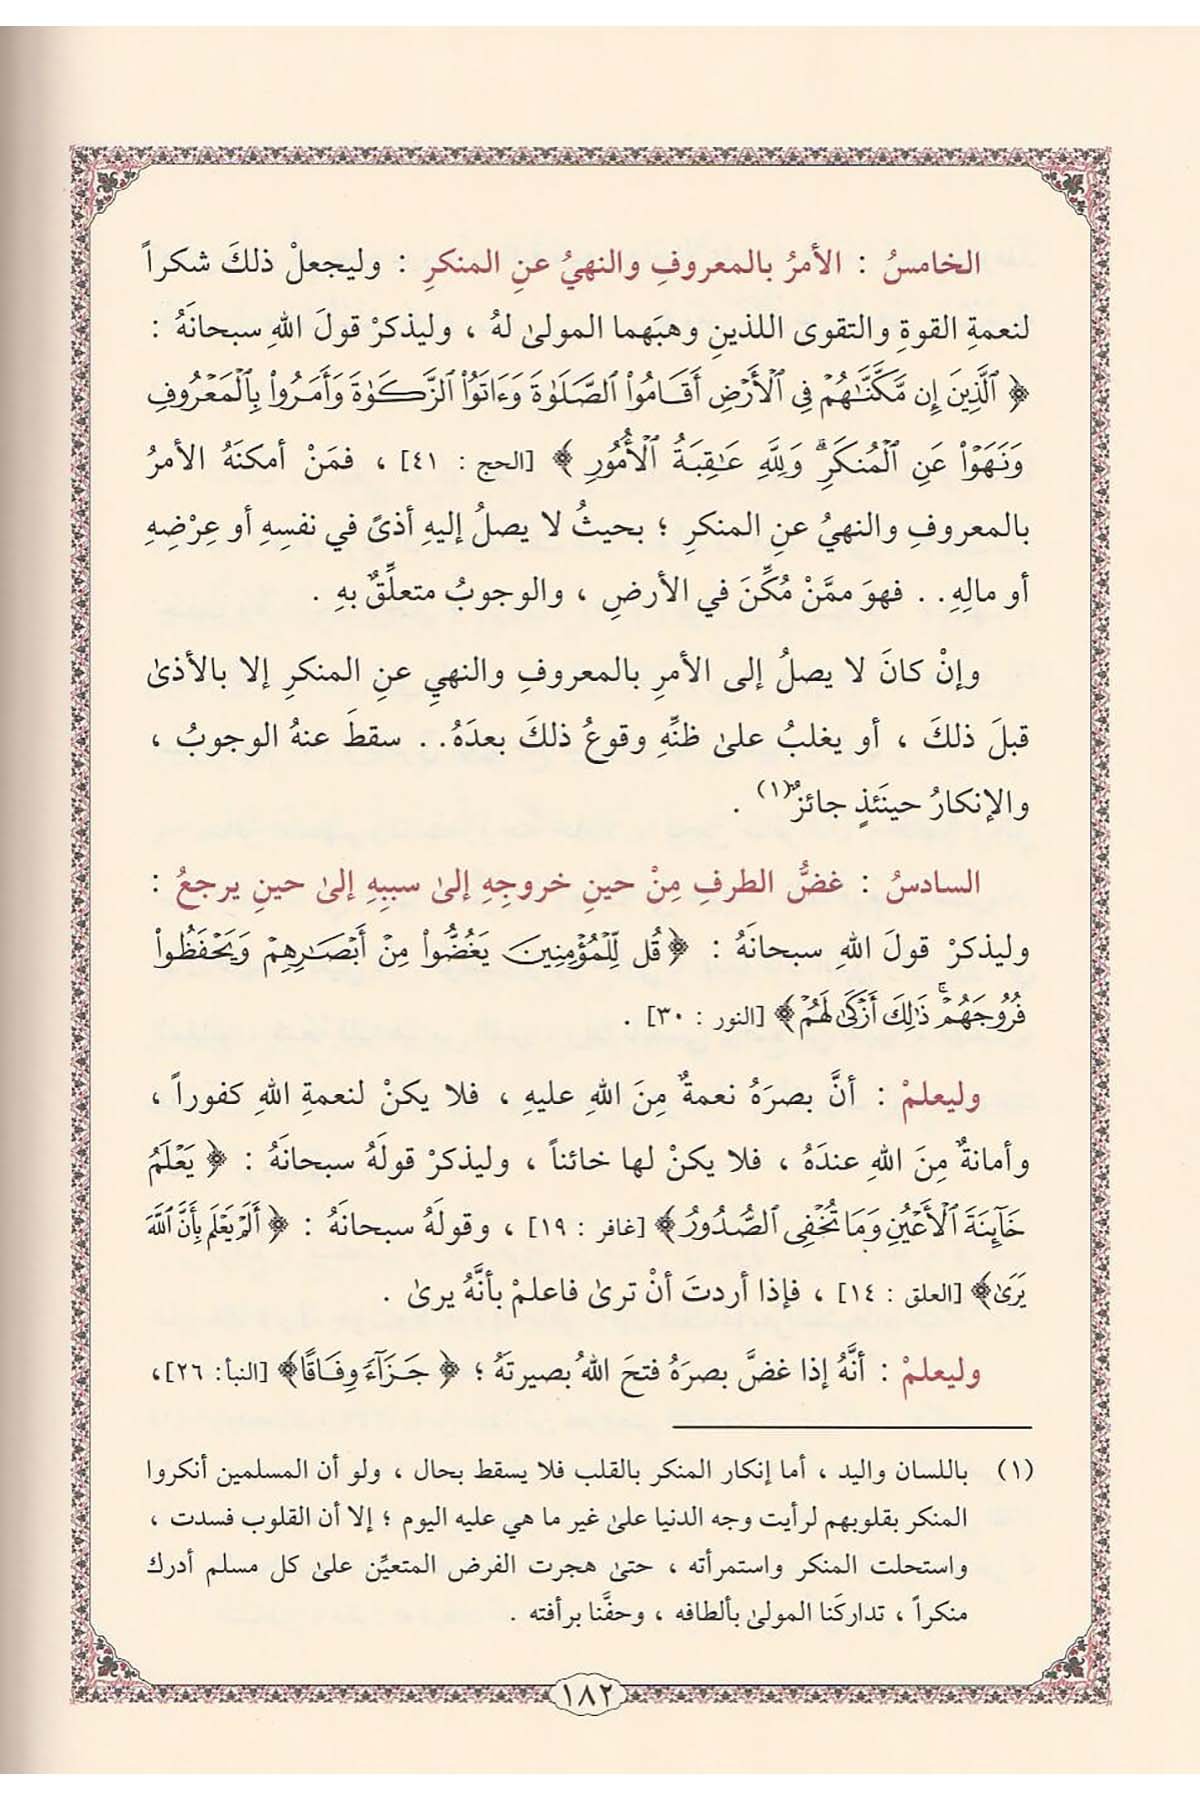 الخامسُ : الأمرُ بالمعروفِ والنهيُ عنِ المنكرِ : وليجعلْ ذلكَ شكراً
لنعمةِ القوةِ والتقوى اللذينِ وهبَهما المولىٰ لهُ ، وليذكرْ قولَ اللهِ سبحانَهُ :
﴿ ٱلَّذِينَ إِن مَّكَّنَّـٰهُمْ فِى ٱلْأَرْضِ أَقَامُوا۟ ٱلصَّلَوٰةَ وَءَاتَوُا۟ ٱلزَّكَوٰةَ وَأَمَرُوا۟ بِٱلْمَعْرُوفِ
وَنَهَوْا۟ عَنِ ٱلْمُنكَرِ ۗ وَلِلَّهِ عَـٰقِبَةُ ٱلْأُمُورِ ﴾ [الحج : ٤١] ، فمَنْ أمكنَهُ الأمرُ
بالمعروفِ والنهيُ عنِ المنكرِ ؛ بحيثُ لا يصلُ إليهِ أذىً في نفسِهِ أو عِرْضِهِ
أو مالِهِ . . فهوَ ممَّنْ مُكِّنَ في الأرضِ ، والوجوبُ متعلِّقٌ بهِ .
وإنْ كانَ لا يصلُ إلى الأمرِ بالمعروفِ والنهيِ عنِ المنكرِ إلا بالأذىٰ
قبلَ ذلكَ ، أو يغلبُ علىٰ ظنِّهِ وقوعُ ذلكَ بعدَهُ . . سقطَ عنهُ الوجوبُ ،
والإنكارُ حينَئذٍ جائزٌ(١) .
السادسُ : غضُّ الطرفِ مِنْ حينِ خروجِهِ إلىٰ سببِهِ إلىٰ حينِ يرجعُ :
وليذكرْ قولَ اللهِ سبحانَهُ : ﴿ قُل لِّلْمُؤْمِنِينَ يَغُضُّوا۟ مِنْ أَبْصَـٰرِهِمْ وَيَحْفَظُوا۟
فُرُوجَهُمْ ۚ ذَٰلِكَ أَزْكَىٰ لَهُمْ ﴾ [النور : ٣٠] .
وليعلمْ : أنَّ بصرَهُ نعمةٌ مِنَ اللهِ عليهِ ، فلا يكنْ لنعمةِ اللهِ كفوراً ،
وأمانةٌ مِنَ اللهِ عندَهُ ، فلا يكنْ لها خائناً ، وليذكرْ قولَهُ سبحانَهُ : ﴿ يَعْلَمُ
خَآئِنَةَ ٱلْأَعْيُنِ وَمَا تُخْفِى ٱلصُّدُورُ ﴾ [غافر : ١٩] ، وقولَهُ سبحانَهُ : ﴿ أَلَمْ يَعْلَم بِأَنَّ ٱللَّهَ
يَرَىٰ ﴾ [العلق : ١٤] ، فإذا أردتَ أنْ ترىٰ فاعلمْ بأنَّهُ يرىٰ .
وليعلمْ : أنَّهُ إذا غضَّ بصرَهُ فتحَ اللهُ بصيرتَهُ ؛ ﴿ جَزَآءً وِفَاقًا ﴾ [النبأ: ٢٦]،
(١) باللسان واليد ، أما إنكار المنكر بالقلب فلا يسقط بحال ، ولو أن المسلمين أنكروا
المنكر بقلوبهم لرأيت وجه الدنيا علىٰ غير ما هي عليه اليوم ؛ إلا أن القلوب فسدت ،
واستحلت المنكر واستمرأته ، حتىٰ هجرت الفرض المتعيِّن علىٰ كل مسلم أدرك
منكراً ، تداركَنا المولىٰ بألطافه ، وحفَّنا برأفته .
١٨٢